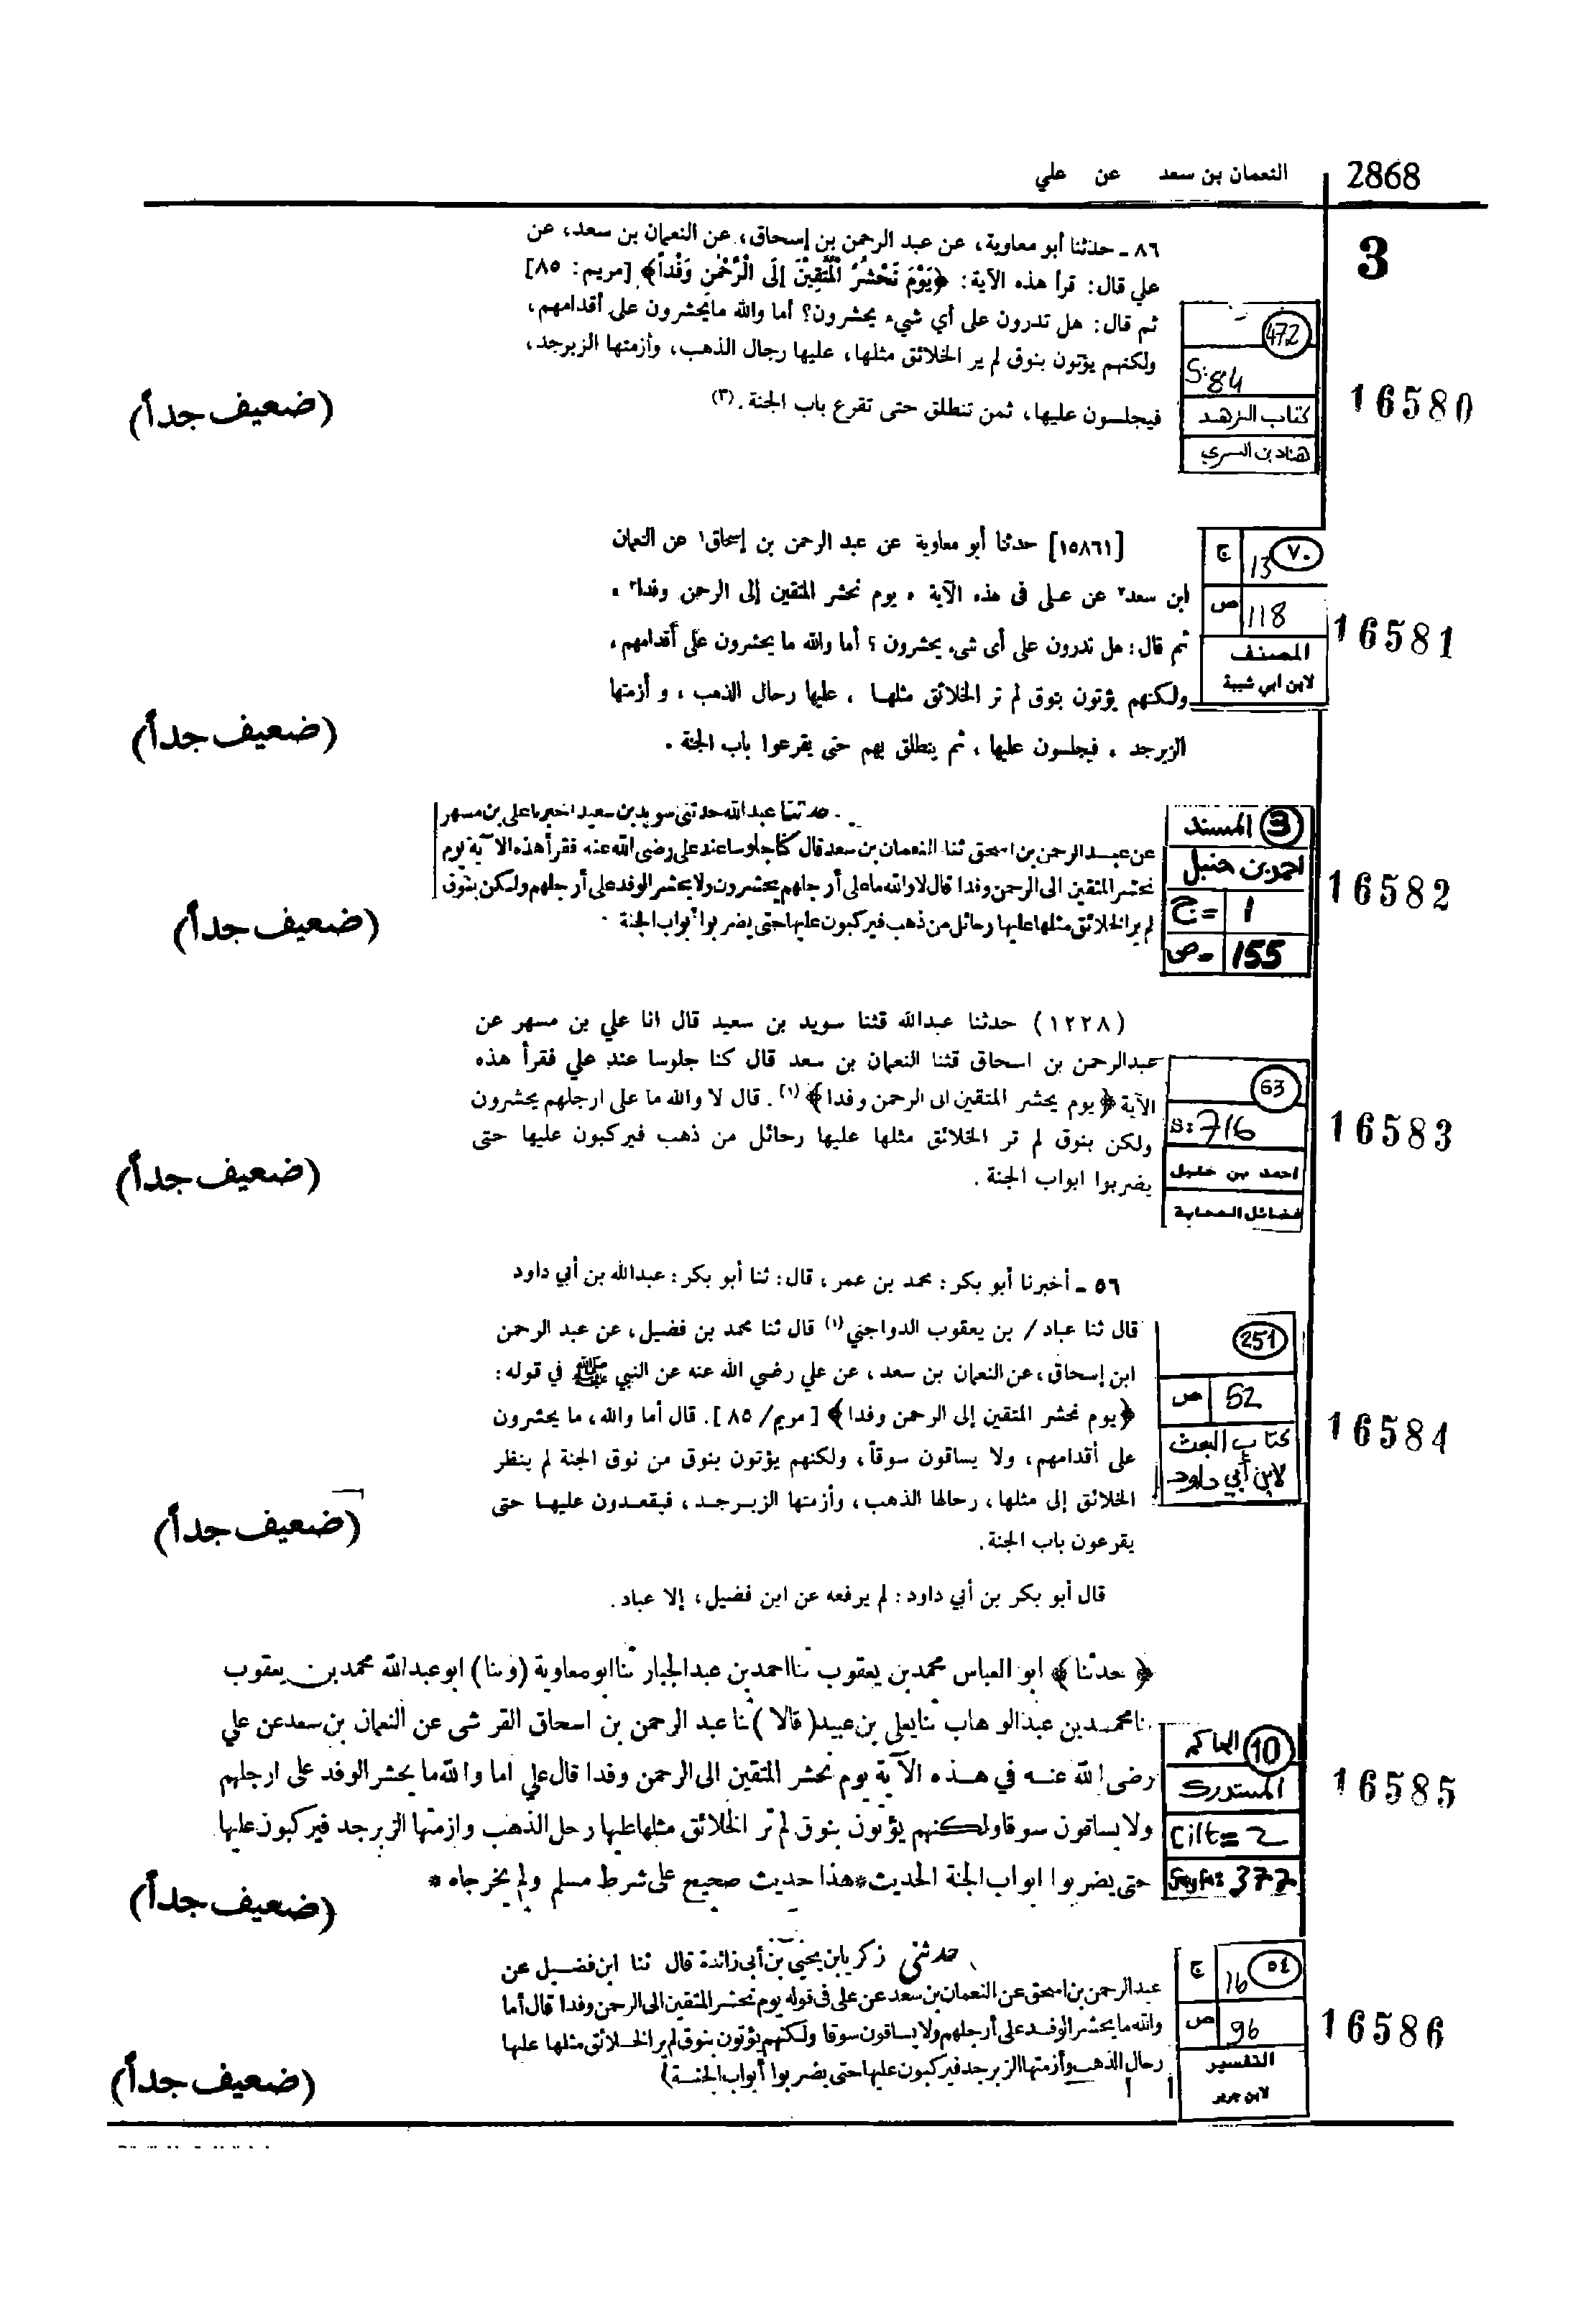 2868
النعمان بن سعد عن علي
3
٨٦ ـ حدثنا أبو معاوية، عن عبد الرحمن بن إسحاق، عن النعمان بن سعد، عن
علي قال: قرأ هذه الآية: ﴿يَوْمَ نَحْشُرُ الْمُتَّقِيْنَ إِلَى الْرَّحْمٰنِ وَفْداً﴾ [مريم: ٨٥]
ثم قال: هل تدرون على أي شيء يحشرون؟ أما والله مايحشرون على أقدامهم،
ولكنهم يؤتون بنوق لم ير الخلائق مثلها، عليها رجال الذهب، وأزمتها الزبرجد،
فيجلسون عليها، ثمن تنطلق حتى تقرع باب الجنة. (٣)
472
S:84
كتاب الزهد
هناد بن السري
16580
(ضعيف جداً)
[١٥٨٦١] حدثنا أبو معاوية عن عبد الرحمن بن إسحاق١ عن النعمان
ابن سعد٢ عن على فى هذه الآية ، يوم نحشر المتقين إلى الرحمن وفدا٣ ،
ثم قال: هل تدرون على أى شىء يحشرون ؟ أما والله ما يحشرون على أقدامهم ،
ولكنهم يؤتون بنوق لم تر الخلائق مثلها ، عليها رحال الذهب ، و أزمتها
الزبرجد ، فيجلسون عليها ، ثم ينطلق بهم حتى يقرعوا باب الجنة .
٧٠
ج 13
ص 118
المصنف
لابن ابي شيبة
16581
(ضعيف جداً)
حدثنا عبدالله حدثنى سويد بن سعيد اخبرنا على بن مسهر
عن عبد الرحمن بن اسحق ثنا النعمان بن سعد قال كنا جلوسا عند على رضى الله عنه فقرأ هذه الآية يوم
نحشر المتقين الى الرحمن وفدا قال لا والله ما على أرجلهم يحشرون ولا يحشر الوفد على أرجلهم ولكن بنوق
لم ير الخلائق مثلها عليها رحائل من ذهب فيركبون عليها حتى يضربوا أبواب الجنة
3 المسند
احمد بن حنبل
ج= 1
ص= 155
16582
(ضعيف جداً)
(١٢٢٨) حدثنا عبدالله قثنا سويد بن سعيد قال انا علي بن مسهر عن
عبدالرحمن بن اسحاق قثنا النعمان بن سعد قال كنا جلوسا عند علي فقرأ هذه
الآية ﴿يوم يحشر المتقين الى الرحمن وفدا﴾ (١). قال لا والله ما على ارجلهم يحشرون
ولكن بنوق لم تر الخلائق مثلها عليها رحائل من ذهب فيركبون عليها حتى
يضربوا ابواب الجنة .
63
s:716
احمد بن حنبل
فضائل الصحابة
16583
(ضعيف جداً)
٥٦ ـ أخبرنا أبو بكر: محمد بن عمر، قال: ثنا أبو بكر: عبدالله بن أبي داود
قال ثنا عباد/ بن يعقوب الدواجني(١) قال ثنا محمد بن فضيل، عن عبد الرحمن
ابن إسحاق، عن النعمان بن سعد، عن علي رضي الله عنه عن النبي ﷺ في قوله:
﴿يوم نحشر المتقين إلى الرحمن وفدا﴾ [مريم/ ٨٥]. قال أما والله، ما يحشرون
على أقدامهم، ولا يساقون سوقاً، ولكنهم يؤتون بنوق من نوق الجنة لم ينظر
الخلائق إلى مثلها، رحالها الذهب، وأزمتها الزبرجد، فيقعدون عليها حتى
يقرعون باب الجنة.
قال أبو بكر بن أبي داود: لم يرفعه عن ابن فضيل، إلا عباد.
251
ص 52
كتاب البعث
لابن أبي داود
16584
(ضعيف جداً)
﴿ حدثنا ﴾ ابو العباس محمد بن يعقوب ثنا احمد بن عبد الجبار ثنا ابو معاوية (وثنا) ابو عبد الله محمد بن يعقوب
ثنا محمد بن عبد الوهاب ثنا يعلى بن عبيد (قالا) ثنا عبد الرحمن بن اسحاق القرشى عن النعمان بن سعد عن علي
رضى الله عنه في هذه الآية يوم نحشر المتقين الى الرحمن وفدا قال علي اما والله ما يحشر الوفد على ارجلهم
ولا يساقون سوقا ولكنهم يؤتون بنوق لم تر الخلائق مثلها عليها رحل الذهب وازمتها الزبرجد فيركبون عليها
حتى يضربوا ابواب الجنة الحديث * هذا حديث صحيح على شرط مسلم ولم يخرجاه *
10 الحاكم
المستدرك
cilt=2
Sayfa: 377
16585
(ضعيف جداً)
حدثنى زكريا بن يحيى بن أبى زائدة قال ثنا ابن فضيل عن
عبد الرحمن بن اسحق عن النعمان بن سعد عن على فى قوله يوم نحشر المتقين الى الرحمن وفدا قال أما
والله ما يحشر الوفد على أرجلهم ولا يساقون سوقا ولكنهم يؤتون بنوق لم ير الخلائق مثلها عليها
رحال الذهب وأزمتها الزبرجد فيركبون عليها حتى يضربوا أبواب الجنة)
٥٤
ج 16
ص 96
التفسير
لابن جرير
16586
(ضعيف جداً)